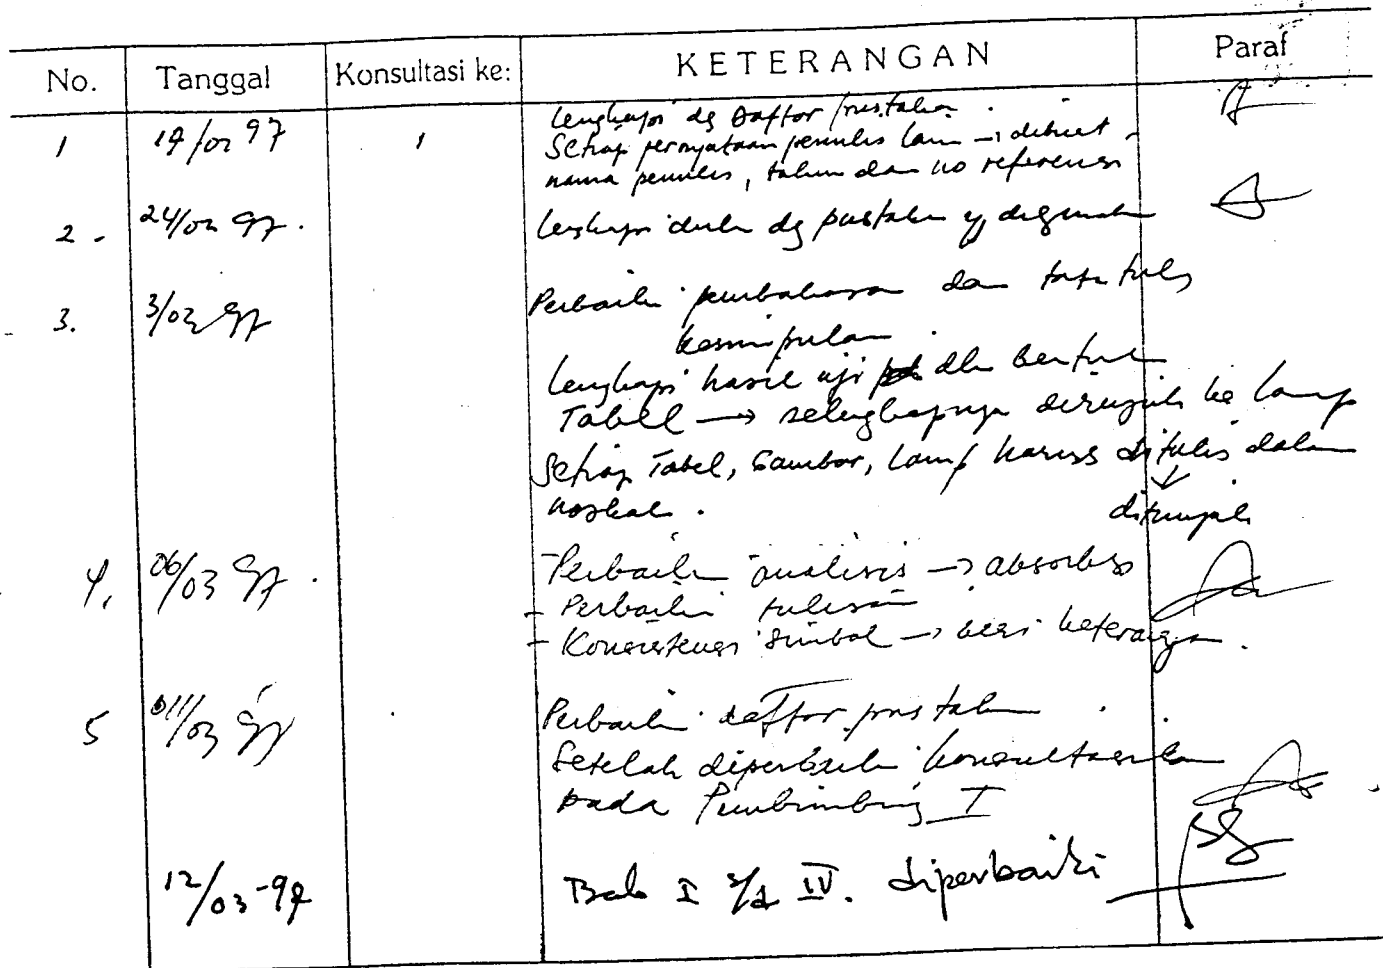 No. Tanggal Konsultasi ke: KETERANGAN Paraf
1 17/02 97 1 Lengkapi dg Daftar pustaka.
Setiap pernyataan penulis lain → dibuat
nama penulis, tahun dan no referensi
2. 24/02 97. Lengkapi dulu dg pustaka yg digunakan
3. 3/03 97 Perbaiki pembahasan dan tata tulis
kesimpulan.
Lengkapi hasil uji dlm bentuk
Tabel → selengkapnya dirujuk ke lamp
Setiap Tabel, Gambar, Lamp harus ditulis dalam
naskah. ditunjuk
4. 06/03 97. - Perbaiki analisis → absorbsi
- Perbaiki tulisan
- Konsistensi simbol → beri keterangan.
5 011/03 97 Perbaiki daftar pustaka.
Setelah diperbaiki konsultasikan
pada Pembimbing I
12/03-97 Bab I s/d IV. diperbaiki